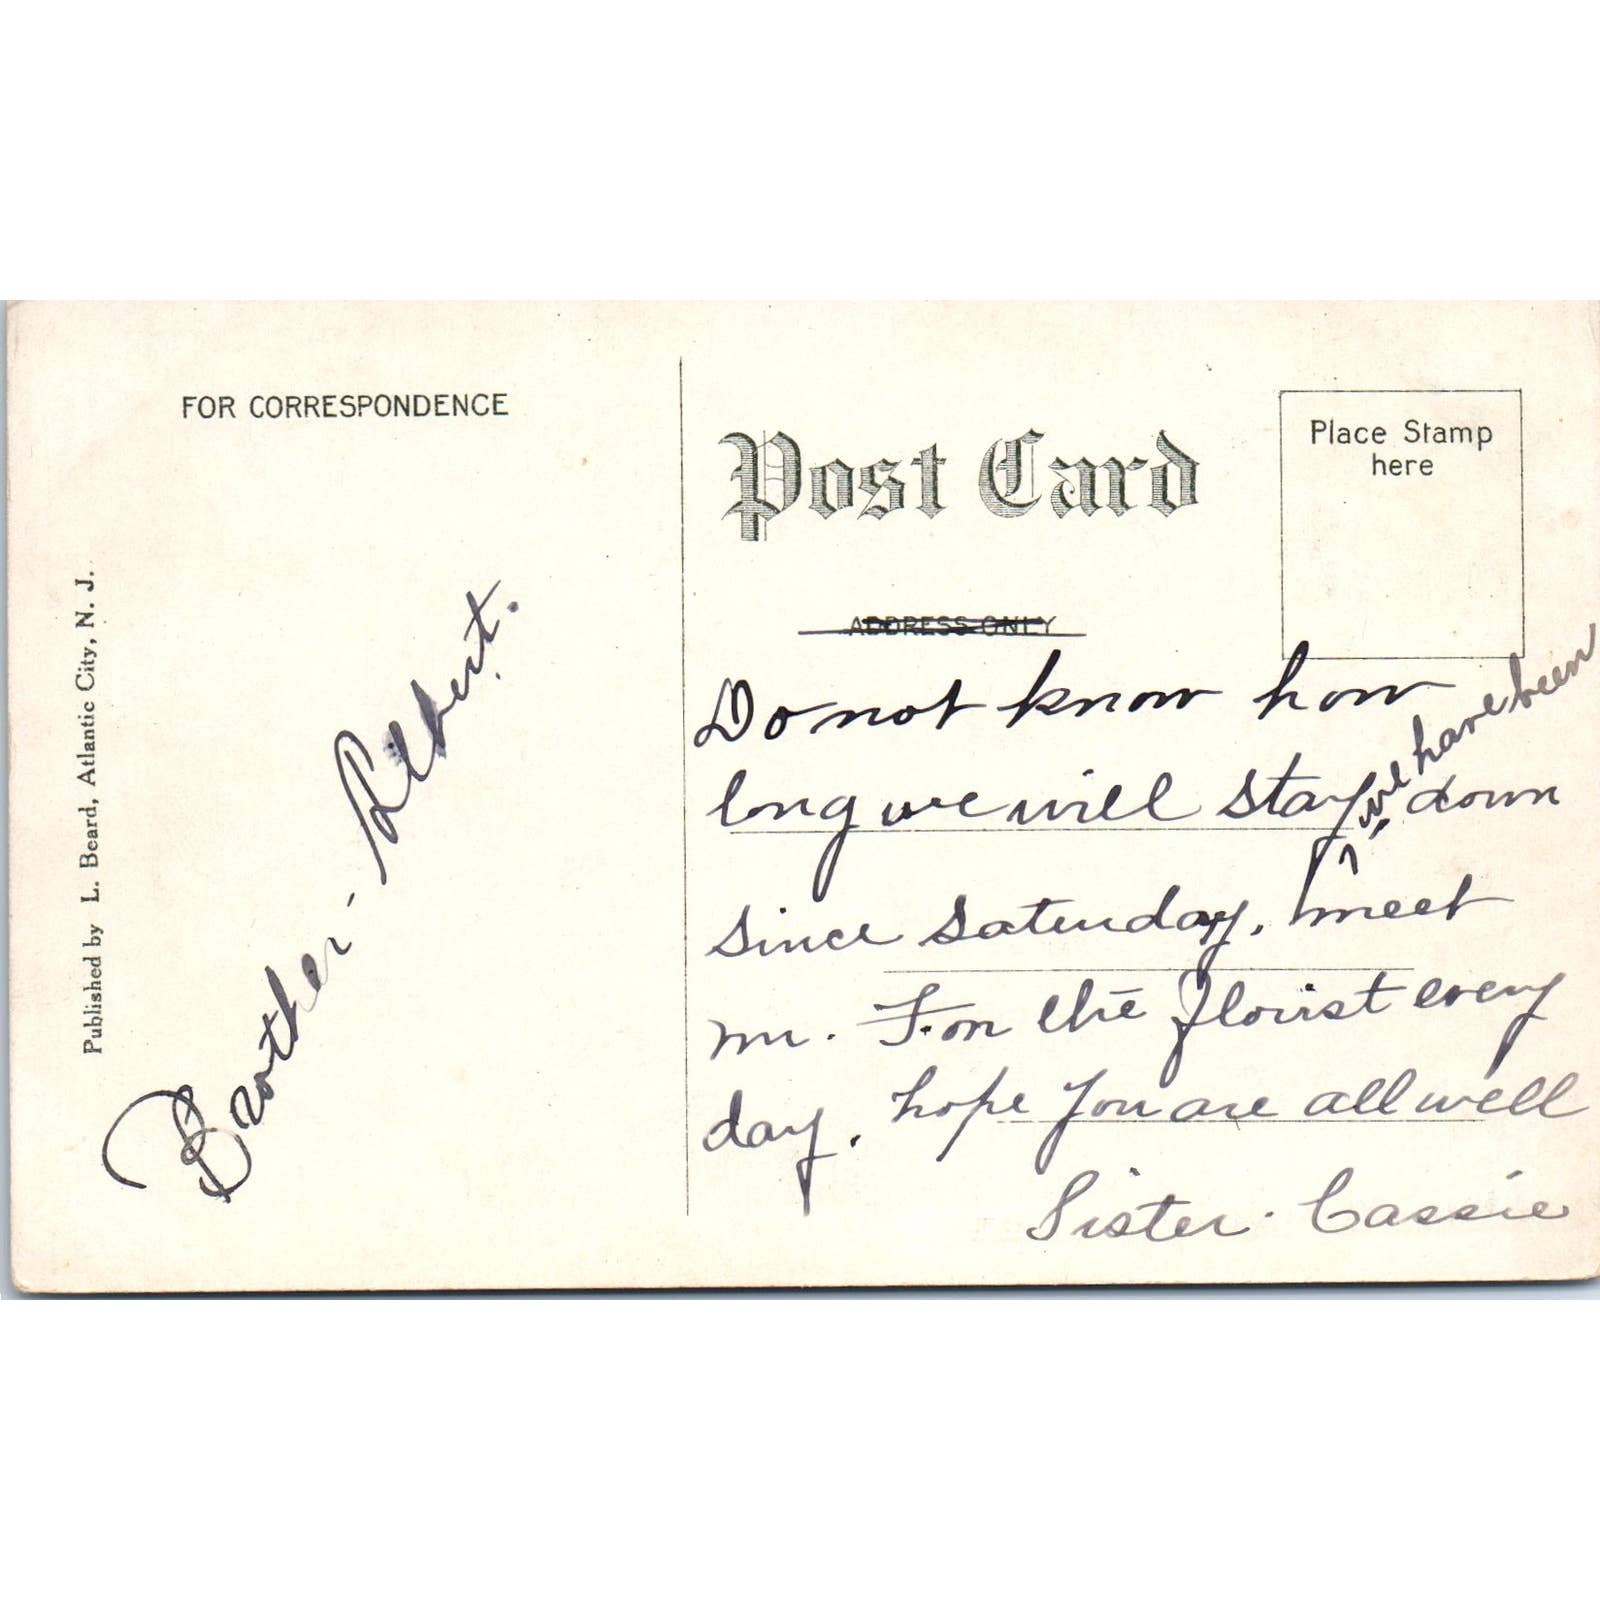 FOR CORRESPONDENCE
Published by L. Beard, Atlantic City, N. J.
Brother-
Post Card
Place Stamp
here
ADDRESS ONLY
Do not know how
long we will stay, we have been down
since Saturday, meet
mr. the florist every
day. hope you are all well
Sister. Cassie